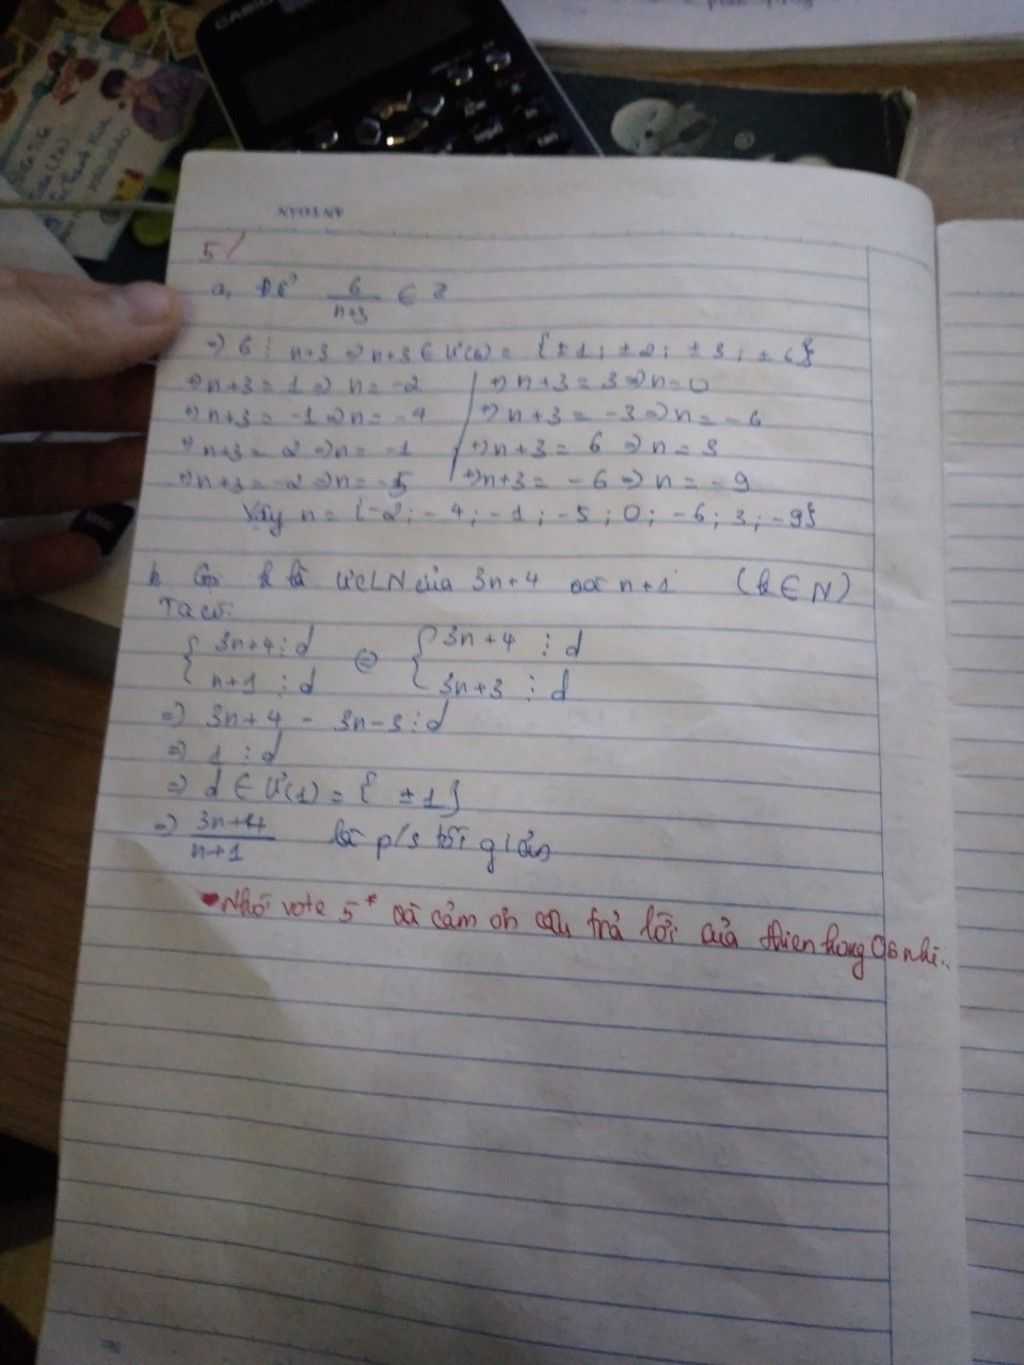 CASIO
AN TOAN
5/
a, Để 6/n+3 ∈ Z
=> 6 ⋮ n+3 => n+3 ∈ Ư(6) = {±1; ±2; ±3; ±6}
=> n+3 = 1 => n = -2 => n+3 = 3 => n = 0
=> n+3 = -1 => n = -4 => n+3 = -3 => n = -6
=> n+3 = 2 => n = -1 => n+3 = 6 => n = 3
=> n+3 = -2 => n = -5 => n+3 = -6 => n = -9
Vậy n = {-2; -4; -1; -5; 0; -6; 3; -9}
b, Gọi là ƯCLN của 3n+4 và n+1 ( ∈ N)
Ta có:
{ 3n+4 ⋮ d <=> { 3n+4 ⋮ d
n+1 ⋮ d 3n+3 ⋮ d
=> 3n+4 - 3n-3 ⋮ d
=> 1 ⋮ d
=> d ∈ Ư(1) = {±1}
=> 3n+4/n+1 là p/s tối giản
Nhớ vote 5* và cảm ơn câu trả lời của thienhong06 nhé..